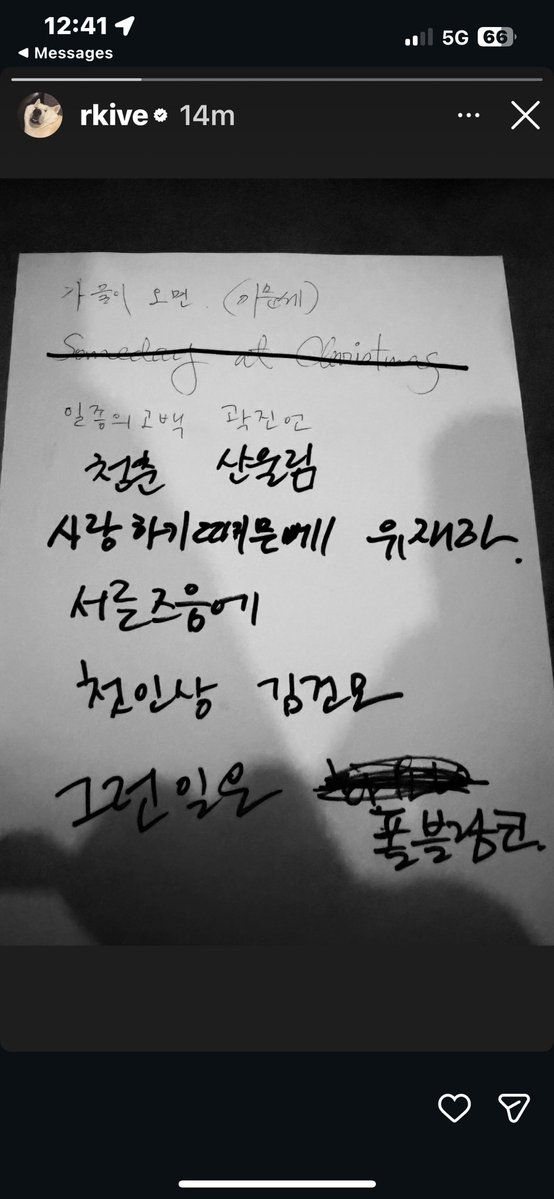 12:41
5G 66
Messages
rkive 14m
가을이 오면. (이문세)
Someday at Christmas
일종의고백 곽진언
청춘 산울림
사랑하기때문에 유재하.
서른즈음에
첫인상 김건모
그런일은
폴블랑코.